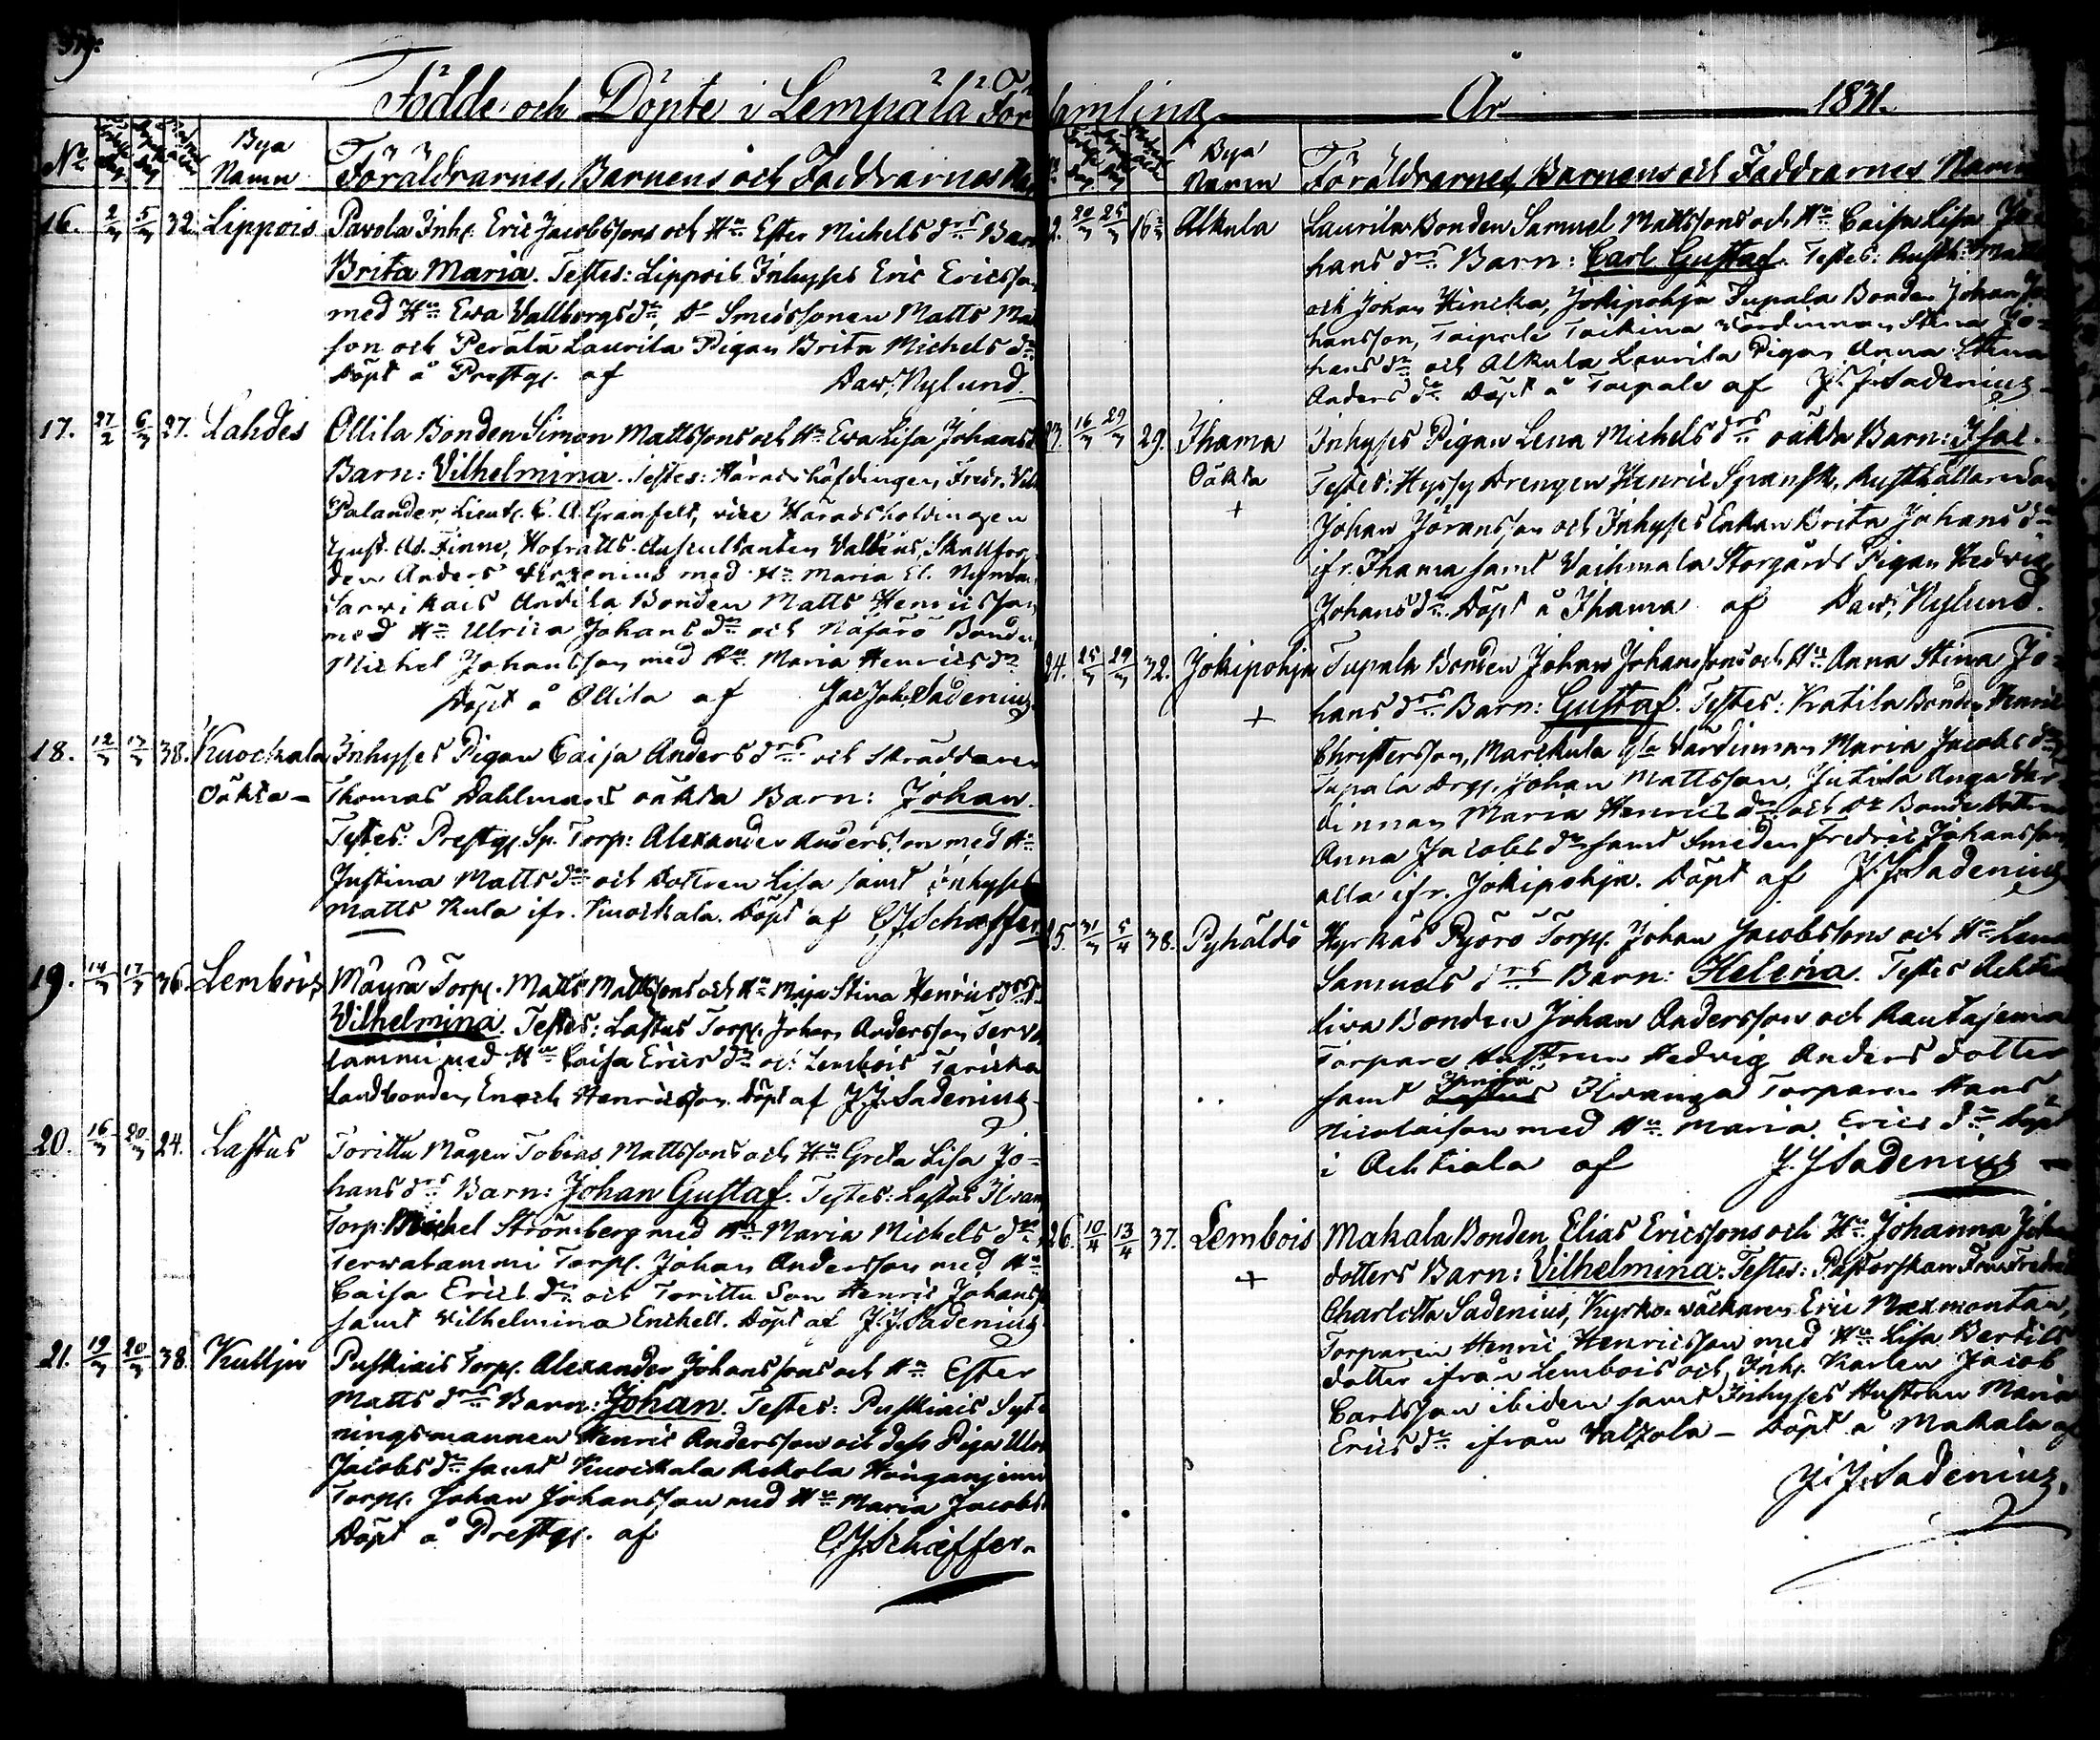 Födde och Döpte i Lempälä För
N:o
Bya Namn
Föräldrarnes, Barnens och Faddrarnes
16. 2/3 5/3 32. Lippois Pavola Inh. Eric Jacobssons och H:u Ester Michels d:rs Barn
Brita Maria. Testes: Lippois Inhyses Eric Ericsson
med H:u Eva Vallborgs d:r, D:o Smedssonen Matts
son och Perälä Laurila Pigan Brita Michels d:r
Döpt å Prestg. af Dav. Nylund.
17. 27/2 6/3 27. Lahdes Ollila Bonden Simon Mattssons och H:u Eva Lisa Johans
Barn: Vilhelmina. Testes: Häradshöfdingen Fredr.
Palander, Lieut. C. A. Granfelt, vice Häradshöfdingen
Gust. Ad. Finne, Hofrätts Auscultanten
den Anders med H:u Maria El.
Andila Bonden Matts Henricsson
med H:u Ulrica Johans d:r och Bonden
Michel Johansson med H:u Maria Henrics d:r
Döpt å Ollila af Jac. Joh. Sadenius
18. 12/3 13/3 38. Kuockala Inhyses Pigan Caisa Anders d:rs och Skräddaren
Oäkta Thomas Dahlmans oäkta Barn: Johan.
Testes: Prestg. Sp. Torp: Alexander Andersson med H:u
Justina Matts d:r och Dottren Lisa samt Inhyses
Matts Kula ifr. Kuockala. Döpt af C. J. Schæffer.
19. 14/3 17/3 36. Lembois Mäyrä Torp. Matts Mattssons och H:u Maja Stina Henrics d:rs
Vilhelmina. Testes: Lastus Torp. Johan Andersson Terva
lammi med H:u Caisa Erics d:r och Lembois
Landbonden Enoch Henricsson. Döpt af J. J. Sadenius
20. 16/3 20/3 24. Lastus Torittu Mågen Tobias Mattssons och H:u Greta Lisa Jo=
hans d:rs Barn: Johan Gustaf. Testes: Lastus
Torp: Michel Strömberg med H:u Maria Michels d:r
Tervalammi Torp. Johan Andersson med H:u
Caisa Erics d:r och Torittu Son Henric Johans
samt Vilhelmina Enckell. Döpt af J. J. Sadenius
21. 19/3 20/3 38. Kulju Puskiais Torp. Alexander Johanssons och H:u Ester
Matts d:rs Barn: Johan. Testes: Puskiais Syt
ningsmannen Henric Andersson och dess Piga
Jacobs d:r samt Kuockala
Torp. Johan Johansson med H:u Maria Jacobs
Döpt å Prestg. af C. J. Schæffer.
amling År 1831.
Bya Namn
Föräldrarnes, Barnens och Faddrarnes Namn
2. 20/3 25/3 Alkula Laurila Bonden Samuel Mattssons och H:u Caisa Lisa Jo
hans d:rs Barn: Carl Gustaf. Testes: Rusth:
och Johan Hincka, Jokipohja Tupala Bonden Johan Jo
hansson, Taipale Toikina Värdinnan Stina Jo=
hans d:r och Alkula Laurila Pigan Anna Stina
Anders d:r Döpt å Taipale af J. J. Sadenius
3. 16/3 29/3 29. Ihama Inhyses Pigan Lena Michels d:rs oäkta Barn: Isac.
Oäkta Testes: Hyssy Drengen Henric Spansk, Rusthållaren
+ Johan Jöransson och Inhyses Enkan Brita Johans d:r
ifr. Ihama samt Vaihmala Storgårds Pigan Hedvig
Johans d:r. Döpt å Ihama af Dav. Nylund.
24. 25/3 29/3 32. Jokipohja Tupala Bonden Johan Johanssons och H:u Anna Stina Jo=
+ hans d:rs Barn: Gustaf. Testes: Katila Bonden Henric
Christersson, Marckula Gla Värdinnan Maria Jacobs d:r
Tupala Drg. Johan Mattsson, Jutila Unga Vär=
dinnan Maria Henrics d:r och D:o Bonde Dottren
Anna Jacobs d:r samt Smeden Fredric Johansson
alla ifr. Jokipohja. Döpt af J. J. Sadenius
5. 31/3 5/4 38. Pyhäldö Hyrkäs Pyörö Torp. Johan Jacobssons och H:u Lena
Samuels d:rs Barn: Helena. Testes
Bonden Johan Andersson och Rautajema
Torpare Hustrun Hedvig Anders dotter
samt Torparen Hans
Nicolaison med H:u Maria Erics d:r Döpt
i Achtiala af J. J. Sadenius
26. 10/4 13/4 37. Lembois Makala Bonden Elias Ericssons och H:u Johanna Johans
+ dotters Barn: Vilhelmina. Testes: Pastorskan Fru Fredrica
Charlotta Sadenius, Kyrkoväcktaren Eric Maxmontan,
Torparen Henric Henricsson med H:u Lisa Bertils
dotter ifrån Lembois och Inh. Karlen Jacob
Carlsson ibidem samt Inhyses Hustrun Maria
Erics d:r ifrån Valzola – Döpt å Makala af
J. J. Sadenius.